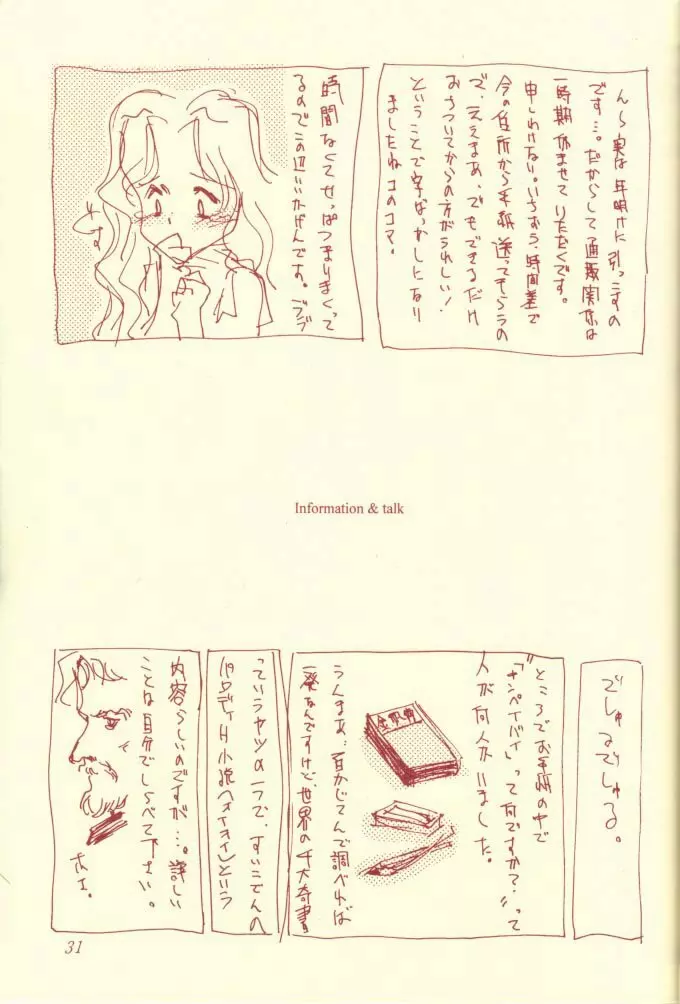 んん実は年明けに引っこすの
です…。だからして通販関係は
一時期休ませていただくです。
申しわけない。いちおう、時間差で
今の住所から手紙送ってもらうの
で、ええまあ、でもできるだけ
おちついてからの方がうれしい!
ということで字ばっかしになり
ましたねコのコマ。
時間なくてせっぱつまりまくって
るのでこの辺いいかげんです。
です
Information & talk
でしゅるでしゅる。
ところでお手紙の中で
「"ナンペイバイ"って何ですか?」って
人が何人かいました。
うんまあ…百かじてんで調べれば
一発なんですけど、世界の千大奇書
っていうヤツの一つで、すいこでんの
パロディH小説(ヘイオイオイ)という
内容らしいのですが…。詳しい
ことは自分でしらべて下さい。
31